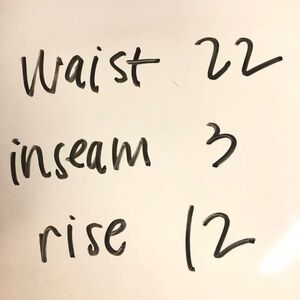 waist 22
inseam 3
rise 12